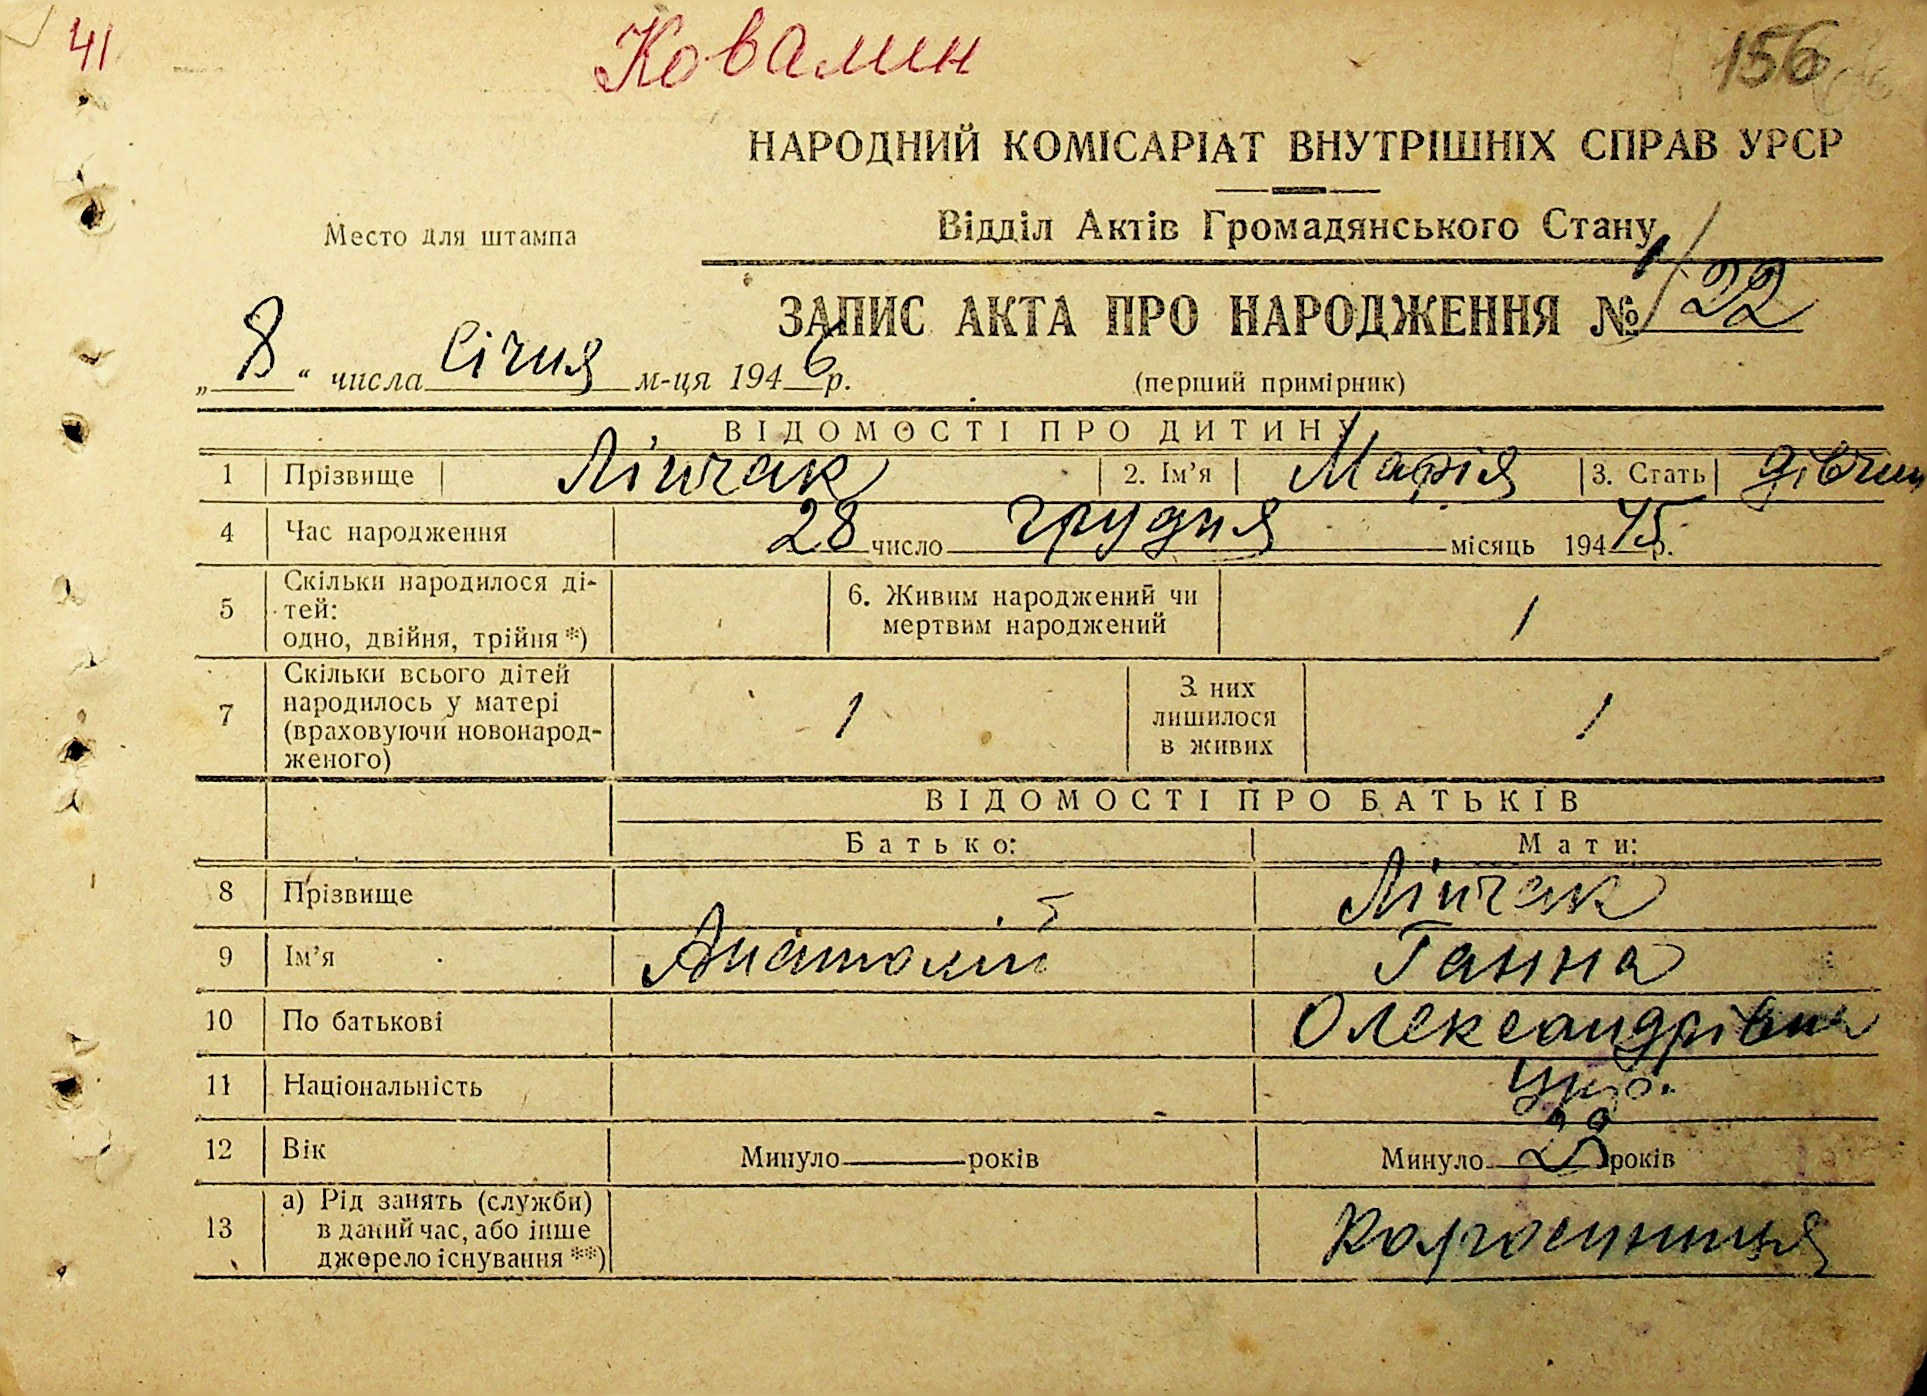 41
Ковалин
156
НАРОДНИЙ КОМІСАРІАТ ВНУТРІШНІХ СПРАВ УРСР
Відділ Актів Громадянського Стану
Место для штампа
ЗАПИС АКТА ПРО НАРОДЖЕННЯ № 1/22
„8“ числа Січня м-ця 1946 р.
(перший примірник)
ВІДОМОСТІ ПРО ДИТИНУ
1 Прізвище Ліпчак 2. Ім'я Марія 3. Стать дівчин
4 Час народження 28 число грудня місяць 19445 р.
5 Скільки народилося ді-
тей:
одно, двійня, трійня *)
6. Живим народжений чи
мертвим народжений
1
7 Скільки всього дітей
народилось у матері
(враховуючи новонарод-
женого)
1
З них
лишилося
в живих
1
ВІДОМОСТІ ПРО БАТЬКІВ
Батько: Мати:
8 Прізвище Ліпчак
9 Ім'я Анатолій Ганна
10 По батькові Олександрівна
11 Національність Укр.
12 Вік Минуло років Минуло років
13 а) Рід занять (служби)
в даний час, або інше
джерело існування **)
Колгоспниця